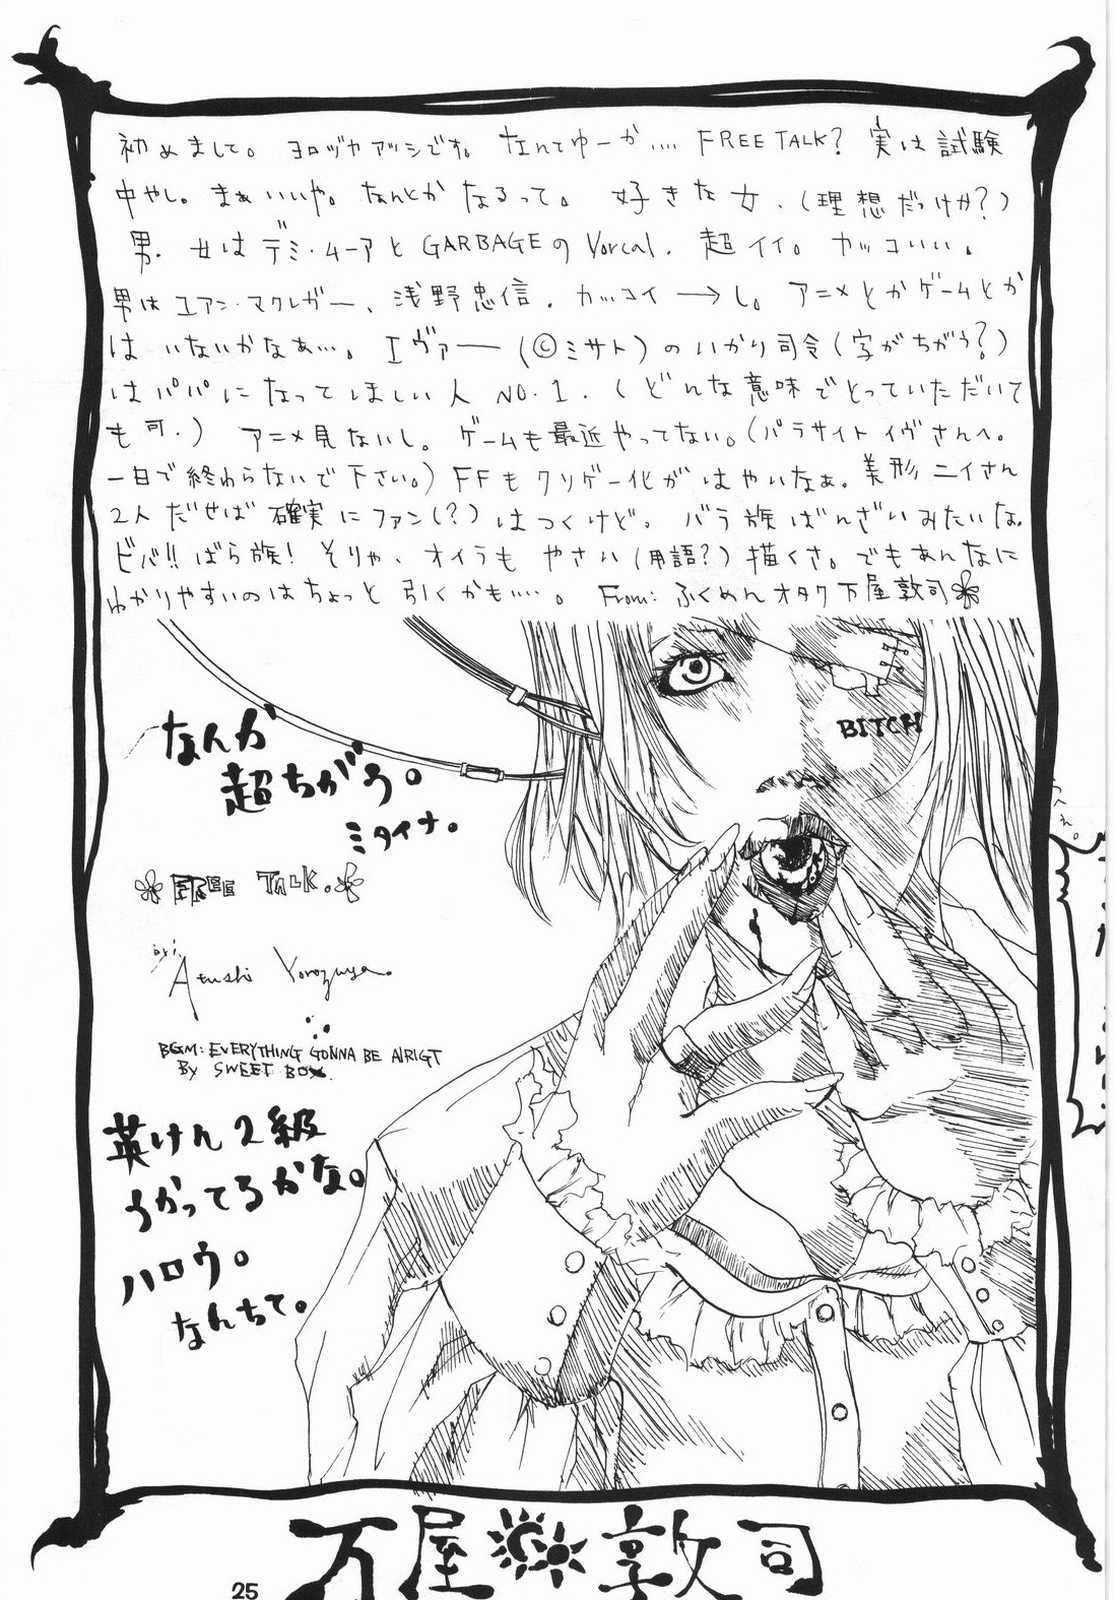 初めまして。ヨロヅヤアツシです。なんてゆーか…. FREE TALK? 実は試験
中やし。まぁいいや。なんとかなるって。好きな女、(理想だっけか?)
男. 女はデミ・ムーアとGARBAGEのVorcal. 超イイ。カッコいい。
男はユアン・マクレガー、浅野忠信. カッコイ→し。アニメとかゲームとか
はいないかなぁ…。エヴァー(©ミサト)のいかり司令(字がちがう?)
はパパになってほしい人 NO.1. (どんな意味でとっていただいて
も可.) アニメ見ないし。ゲームも最近やってない。(パラサイトイヴさんへ。
一日で終わらないで下さい。) FFもクソゲー化がはやいなぁ。美形ニイさん
2人だせば確実にファン(?)はつくけど。バラ族ばんざいみたいな。
ビバ!!ばら族! そりゃ、オイラもやさい(用語?)描くさ。でもあんなに
わかりやすいのはちょっと引くかも…..。From: ふくめんオタク万屋敦司
BITCH
なんか
超ちがう。
ミタイナ。
FREE TALK.
by: Atushi Yorozuya.
BGM: EVERYTHING GONNA BE ALRIGT
By SWEET BOX.
英けん2級
うかってるかな。
ハロウ。
なんちて。
万屋敦司
25